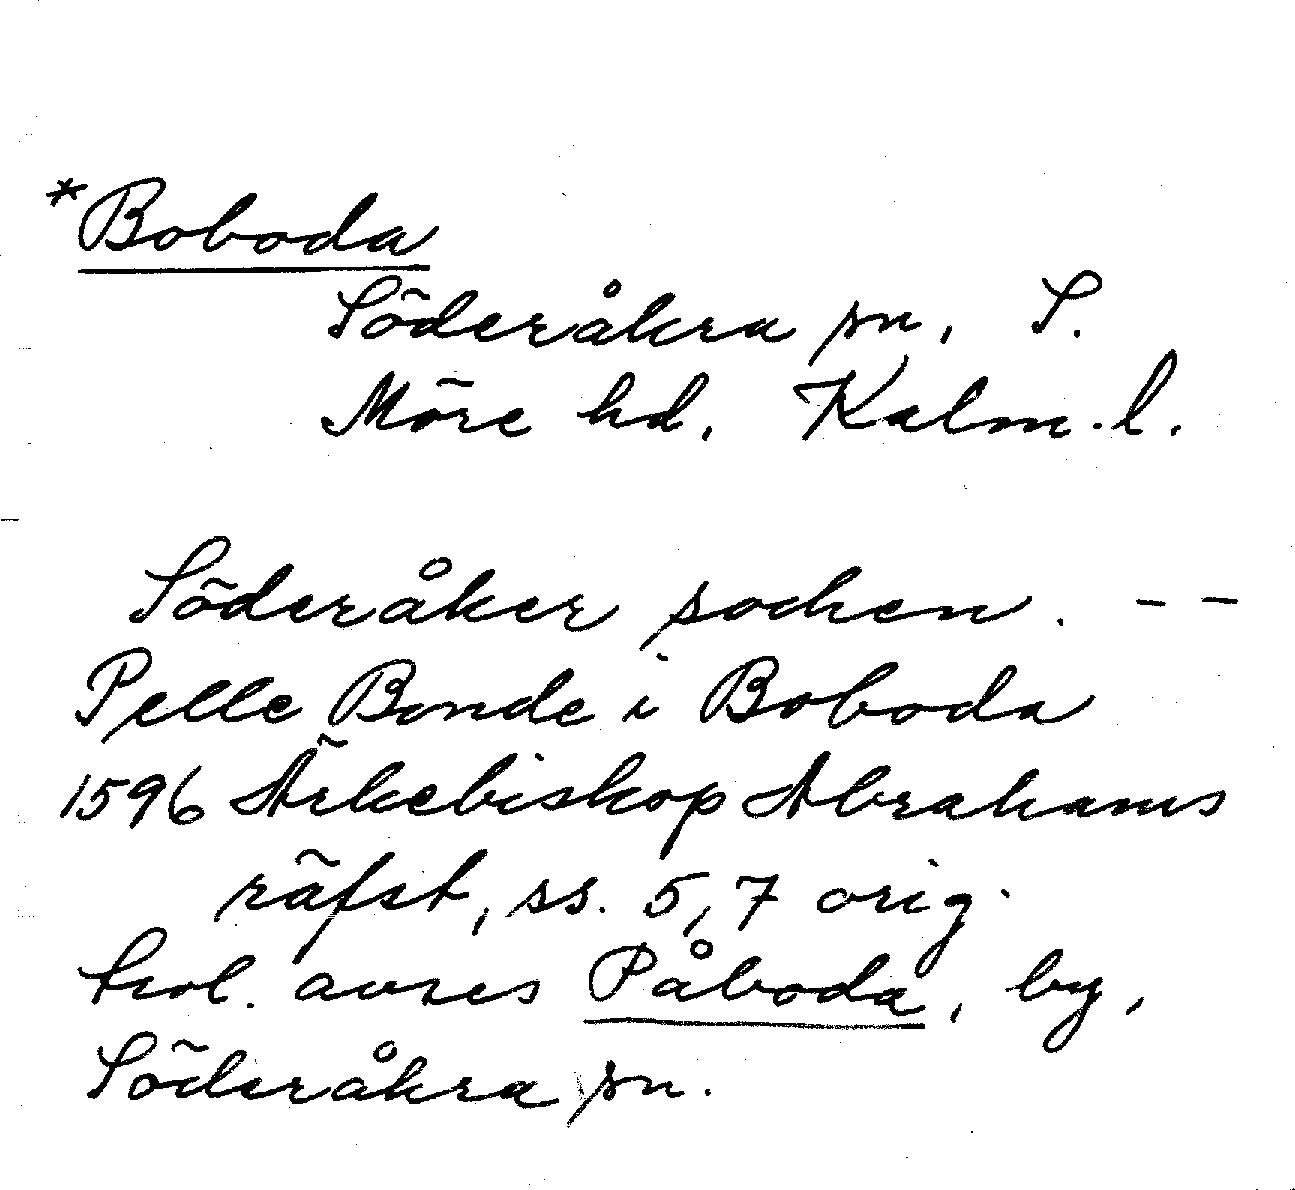 *Boboda
Söderåkra sn, S.
Möre hd, Kalm. l.
Söderåker sochen. - -
Pelle Bonde i Boboda
1596 Ärkebiskop Abrahams
räfst, ss. 5, 7 orig.
trol. avses Påboda, by,
Söderåkra sn.